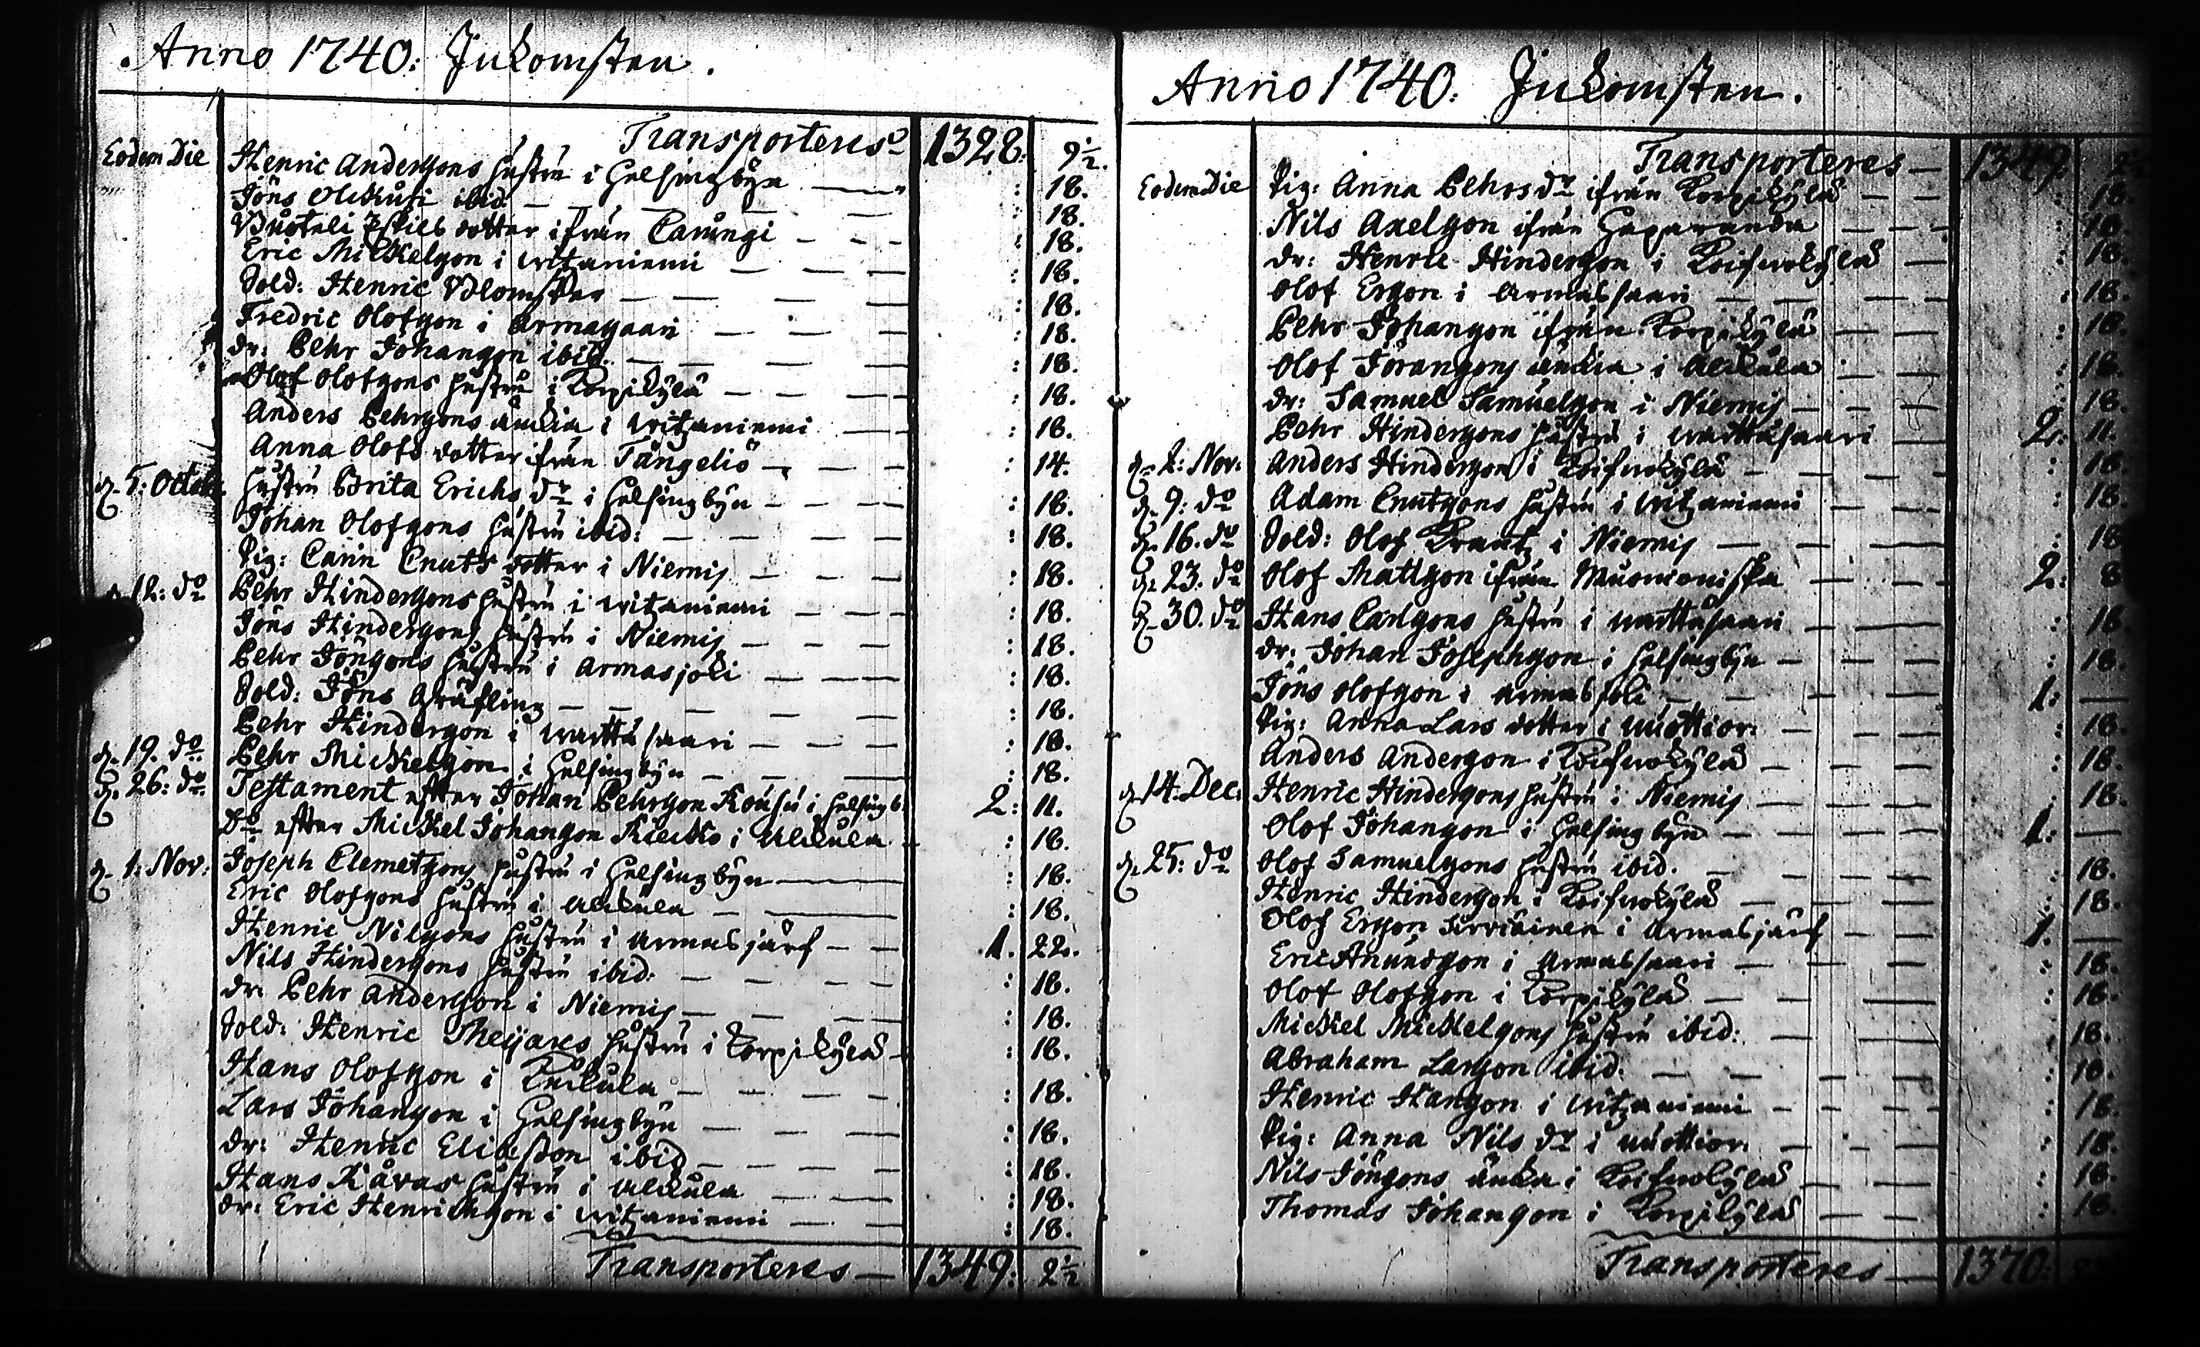 Anno 1740: Inkomsten.
Transporteres 1328: 9½.
Eodem Die Henric Andersons hustru i Helsingbÿn : 18.
Jöns Olikusi ibid : 18.
Eskils dotter ifrån Carungi : 18.
Eric Mickelson i Witzaniemi : 18.
Sold: Henric Blomster : 18.
Fredric Olofson i Armasaari : 18.
dr: Pehr Johanson ibid. : 18.
Olof Olofsons hustru i Korpikÿlä : 18.
Anders Pehrsons änkia i Witzaniemi : 18.
Anna Olofs dotter ifrån Tängeliö : 14.
d. 5: Octob. hustru Brita Erichs dr i Helsingbÿn : 18.
Johan Olofsons hustru ibid: : 18.
Pig: Carin Cnuts dotter i Niemis : 18.
d. 12: do Pehr Hindersons hustru i Witzaniemi : 18.
Jöns Hindersons hustru i Niemis : 18.
Pehr Jönsons hustru i Armasjoki : 18.
Sold: Jöns Gräfling : 18.
Pehr Hinderson i Warttåsaari : 18.
d. 19. do Pehr Mickelson i Helsingbÿn : 18.
d. 26: do Testament efter Johan Pehrson Kousu i Helsingb. 2: 11.
Do efter Mickel Johanson i Alkkula : 18.
d. 1: Nov: Joseph Clemetsons hustru i Helsingbÿn : 18.
Eric Olofsons hustru i Alkkula : 18.
Henric Nilsons hustru i Armasjärf 1. 22.
Nils Hindersons hustru ibid: : 18.
dr. Pehr Anderson i Niemis : 18.
Sold: Henric Meijares hustru i Korpikÿlä : 18.
Hans Olofson i Kuikula : 18.
Lars Johanson i Helsingbÿn : 18.
dr: Henric Eliasson ibid : 18.
Hans Kåvas hustru i Alkkula : 18.
dr: Eric Henrichson i Witzaniemi : 18.
Transporteres 1349: 2½
Anno 1740: Inkomsten.
Transporteres 1349:
Eodem Die Pig: Anna Pehrs dr ifrån Korpikÿlä 18.
Nils Axelson ifrån Haparanda : 18
dr: Henric Hinderson i Koifwukÿlä : 18.
Olof Erson i Armassaari : 18.
Pehr Johanson ifrån Korpikÿlä : 18.
Olof Göransons änkia i Alkkula : 18.
dr: Samuel Samuelson i Niemis : 18.
Pehr Hindersons hustru i Warttåsaari 2. 11.
d. 2: Nov: Anders Hinderson i Koifwukÿlä : 18.
d. 9: do Adam Cnutsons hustru i Witzaniemi : 18.
d. 16. do Sold: Olof Krantz i Niemis : 18
d. 23. do Olof Matsson ifrån Muonioniska 2. 8
d. 30. do Hans Carlsons hustru i Warttåsaari : 18.
dr: Johan Josephson i Helsingbÿn : 18.
Jöns Olofson i Armasjoki 1: —
Pig: Anna Lars dotter i : 18.
Anders Anderson i Koifwukÿlä : 18.
d. 14: Dec: Henric Hindersons hustru i Niemis : 18.
Olof Johanson i Helsingbÿn 1: —
d. 25: do Olof Samuelsons hustru ibid. : 18.
Henric Hinderson i Koifwukÿlä : 18.
Olof Erson i Armasjärf 1. —
Eric Anundson i Armassaari : 18.
Olof Olofson i Korpikÿlä : 18.
Mickel Mickelsons hustru ibid: : 18.
Abraham Larson ibid. : 18.
Henric Hanson i Witzaniemi : 18.
Pig: Anna Nils dr i : 18.
Nils Jönsons änka i Koifwukÿlä : 18.
Thomas Johanson i Korpikÿlä : 18.
Transporteres 1370: